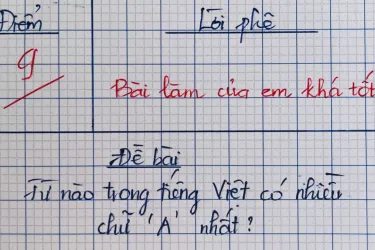 Điểm
Lời phê
9
Bài làm của em khá tốt
Đề bài
Từ nào trong tiếng Việt có nhiều
chữ 'A' nhất?